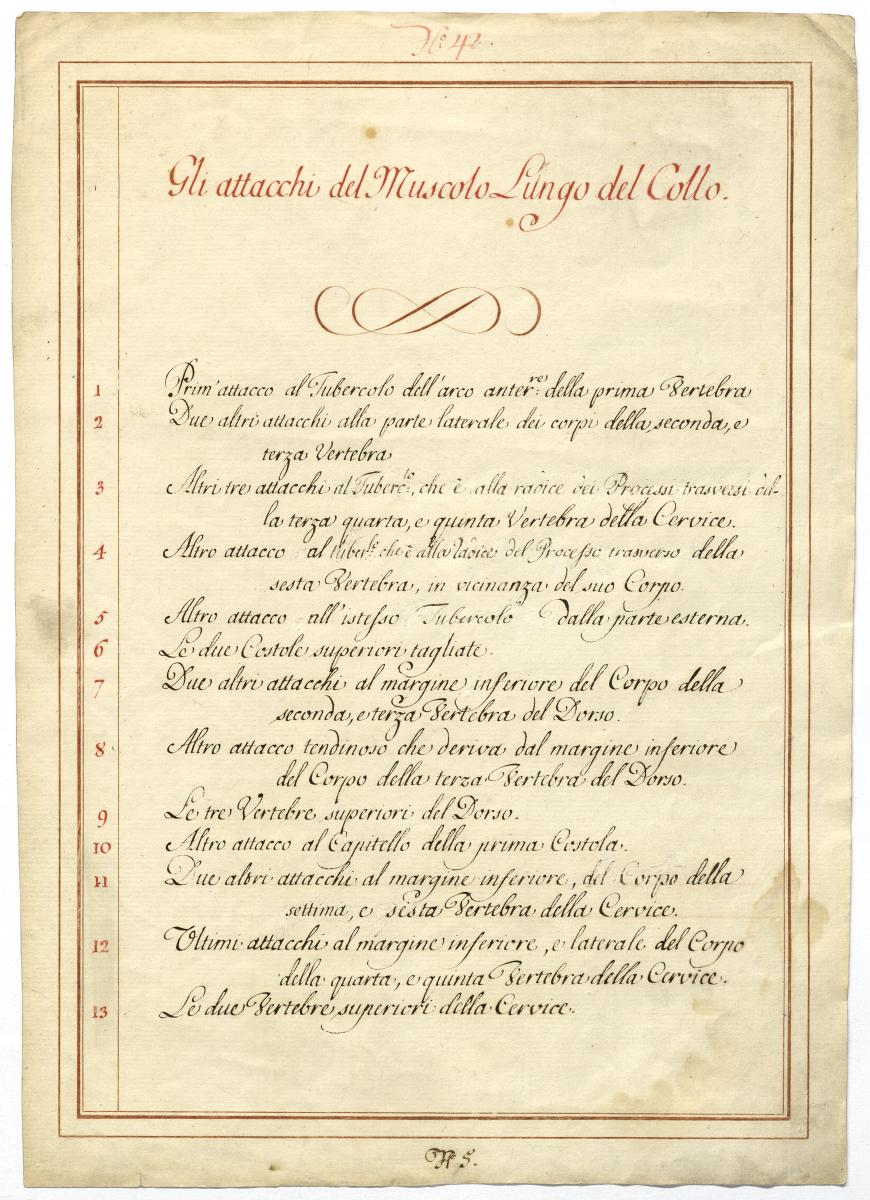 N.º 42.
Gli attacchi del Muscolo Lungo del Collo.
1 Prim' attacco al Tubercolo dell'arco anter.re della prima Vertebra
2 Due altri attacchi alla parte laterale dei corpi della seconda, e
terza Vertebra
3 Altri tre attacchi al Tuberc.lo, che è alla radice dei Processi trasversi del-
la terza quarta, e quinta Vertebra della Cervice.
4 Altro attacco al tuber.lo che è alla radice del Processo trasverso della
sesta Vertebra, in vicinanza del suo Corpo.
5 Altro attacco all'istesso Tubercolo dalla parte esterna.
6 Le due Costole superiori tagliate.
7 Due altri attacchi al margine inferiore del Corpo della
seconda, e terza Vertebra del Dorso.
8 Altro attacco tendinoso che deriva dal margine inferiore
del Corpo della terza Vertebra del Dorso.
9 Le tre Vertebre superiori del Dorso.
10 Altro attacco al Capitello della prima Costola.
11 Due altri attacchi al margine inferiore, del Corpo della
settima, e sesta Vertebra della Cervice.
12 Ultimi attacchi al margine inferiore, e laterale del Corpo
della quarta, e quinta Vertebra della Cervice.
13 Le due Vertebre superiori della Cervice.
N.º 5.